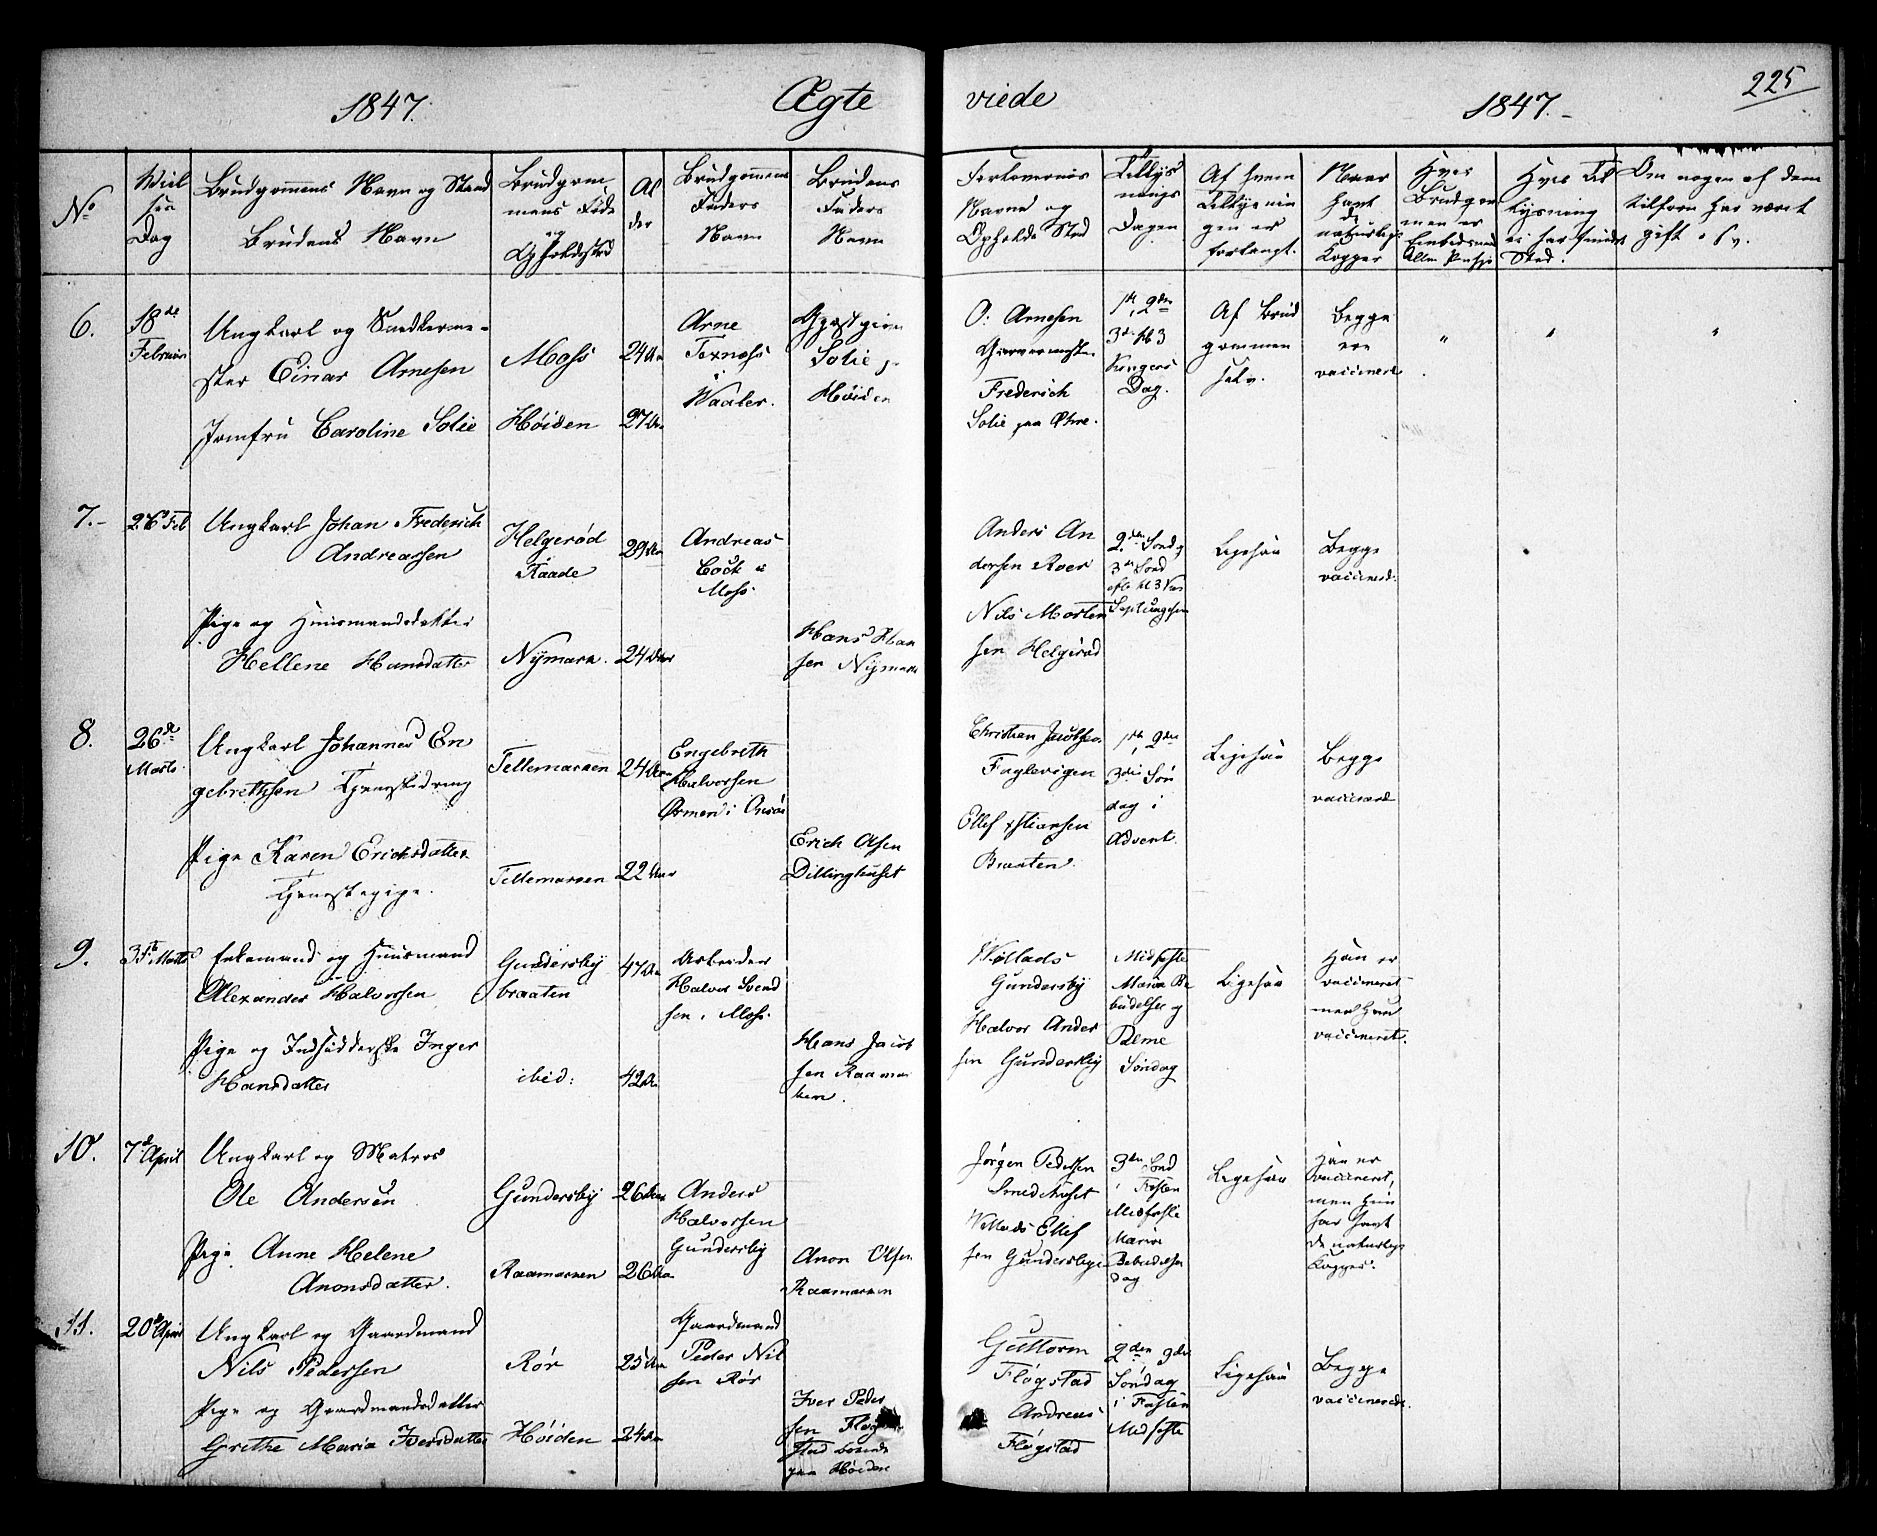 1847.
Ægte
viede
1847.-
225
No
Viel
sen
Dag
Brudgommens Navn og Stand
Brudens Navn
Brudgom
mens Føde
og
Opholdssted
Al
der
Brudgommens
Faders
Navn
Brudens
Faders
Navn
Forlovernes
Navne og
Opholds Sted
Tillys
nings
Dagen
Af hvem
Tillysnin
gen er
forlangt.
Naar
havt
de
naturlige
Kopper
Hvis
Brudgom
men er
Hvis Til
lysning
ei har fundet
Sted.
Om nogen af dem
tilforn har været
gift o. s. v.
6.
18de
Februar
Ungkarl og Snedkerme-
ster Einar Arnesen
Jomfru Caroline Solie
Moss
Høiden
24 Aar
27 Aar
Arne
Texnæss
i
Waaler.
Gjæstgiver
Solie p.
Høiden
O: Arnesen
Garvermester
Frederich
Solie paa Østre.
1ste, 2den
3die H 3
Kongers
Dag.
Af Brud
gommen
selv.
Begge
ere
vaccinerede
"
"
"
7.-
26 Feb
Ungkarl Johan Frederich
Andreassen
Pige og Huusmandsdatter
Hellene Hansdatter
Helgerød
i Raade
Nÿmarn.
29 Aar
24 Aar
Andreas
Cock i
Moss.
Hans Han
sen Nÿmarn
Anders An
dersen Roer
Nils Morten
sen Helgerød
2den Sond og
3die Sond
efter H 3 K
Septuagesima
Ligesaa
Begge
vaccinerede.
8.
26de
Marts
Ungkarl Johannes En
gebrethsen Tjenestedreng
Pige Karen Erichsdatter
Tjenestepige.
Tellemarnen
Tellemarnen
24 Aar
22 Aar
Engebreth
Halvorsen
Ørmen i Onsøe
Erich Olsen
Dillinghuset
Christian Jacobsen
Fuglevigen
Ellef Xstiansen
Braaten.
1ste, 2den
3die Søn
dag i
Advent.
Ligesaa
Begge
vaccinerede
9.
31te Marts
Enkemand og Huusmand
Alexander Halvorsen
Pige og Indsidderske Inger
Hansdatter
Gundersby
braaten
ibid:
47 Aar
42 Aar
Arbeider
Halvor Svend
sen i Moss.
Hans Jacob
sen Raamar
nen.
Wøllads
Gundersby
Halvor Ander
sen Gundersby
Midfaste
Mariæ Be
budelse og
Palme
Søndag
Ligesaa
Han er
vaccineret
men Hun
vaccineret.
10.
7de April
Ungkarl og Matros
Ole Andersen
Pige Anne Helene
Anonsdatter.
Gundersby
Raamarnen
26 Aar
26 Aar
Anders
Halvorsen
Gundersby
Anon Olsen
Raamarnen
Jørgen Pedersen
Smedhuset
Wøllads Ellef
sen Gundersbye
3die Sond
i Fasten
Midfaste
Mariæ
Bebudelses
dag
Ligesaa
Han er
vaccineret,
men Hun
har havt
de naturlige
Kopper.
11.
20de April
Ungkarl og Gaardmand
Nils Pedersen
Pige og Gaardmandsdatter
Grethe Maria Iversdatter
Rør
Høiden
25 Aar
24 Aar
Gaardmand
Peder Nil
sen Rør
Iver Peder
sen Fløg
stad boende
paa Høiden
Guttorm
Fløgstad
Andreas
Fløgstad
2den 3die
Søndag
i Fasten
Midfaste
Ligesaa
Begge
vaccinerede.